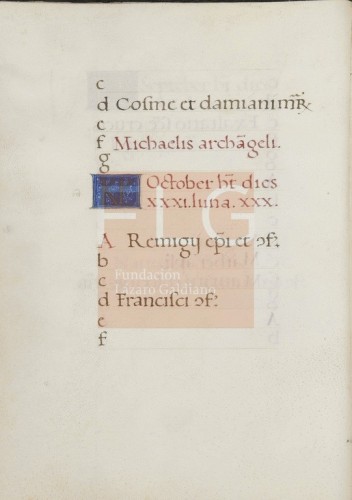 c
d Cosme et damiani mr̃
e
f
g Michaelis archãgeli.
KL October hẽt dies
xxxi. luna. xxx.
A Remigij ep̃i et ɔf.
b
c
d Francisci ɔf.
e
f
FLG
Fundación
Lázaro Galdiano